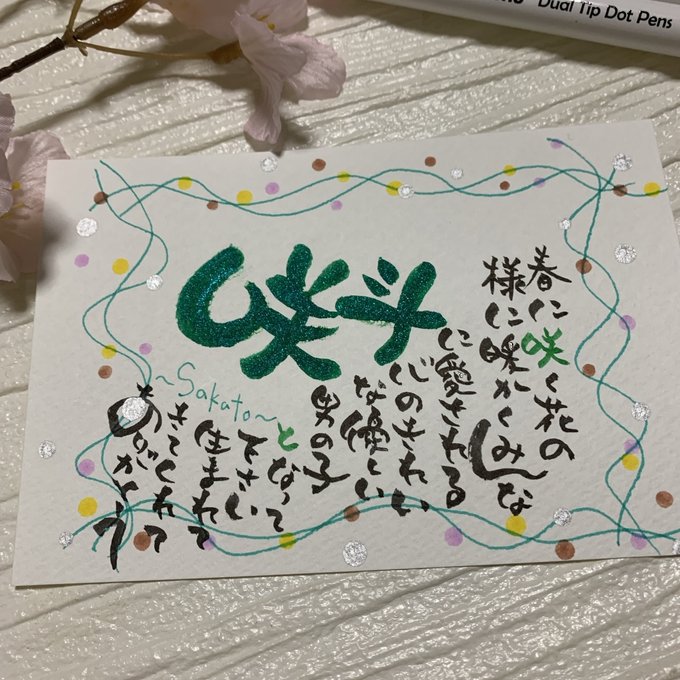 Dual Tip Dot Pens
咲斗
~Sakato~
春に咲く花の
様に暖かくみんな
に愛される
心のきれい
な優しい
男の子
となって
下さい
生まれて
きてくれて
ありがとう